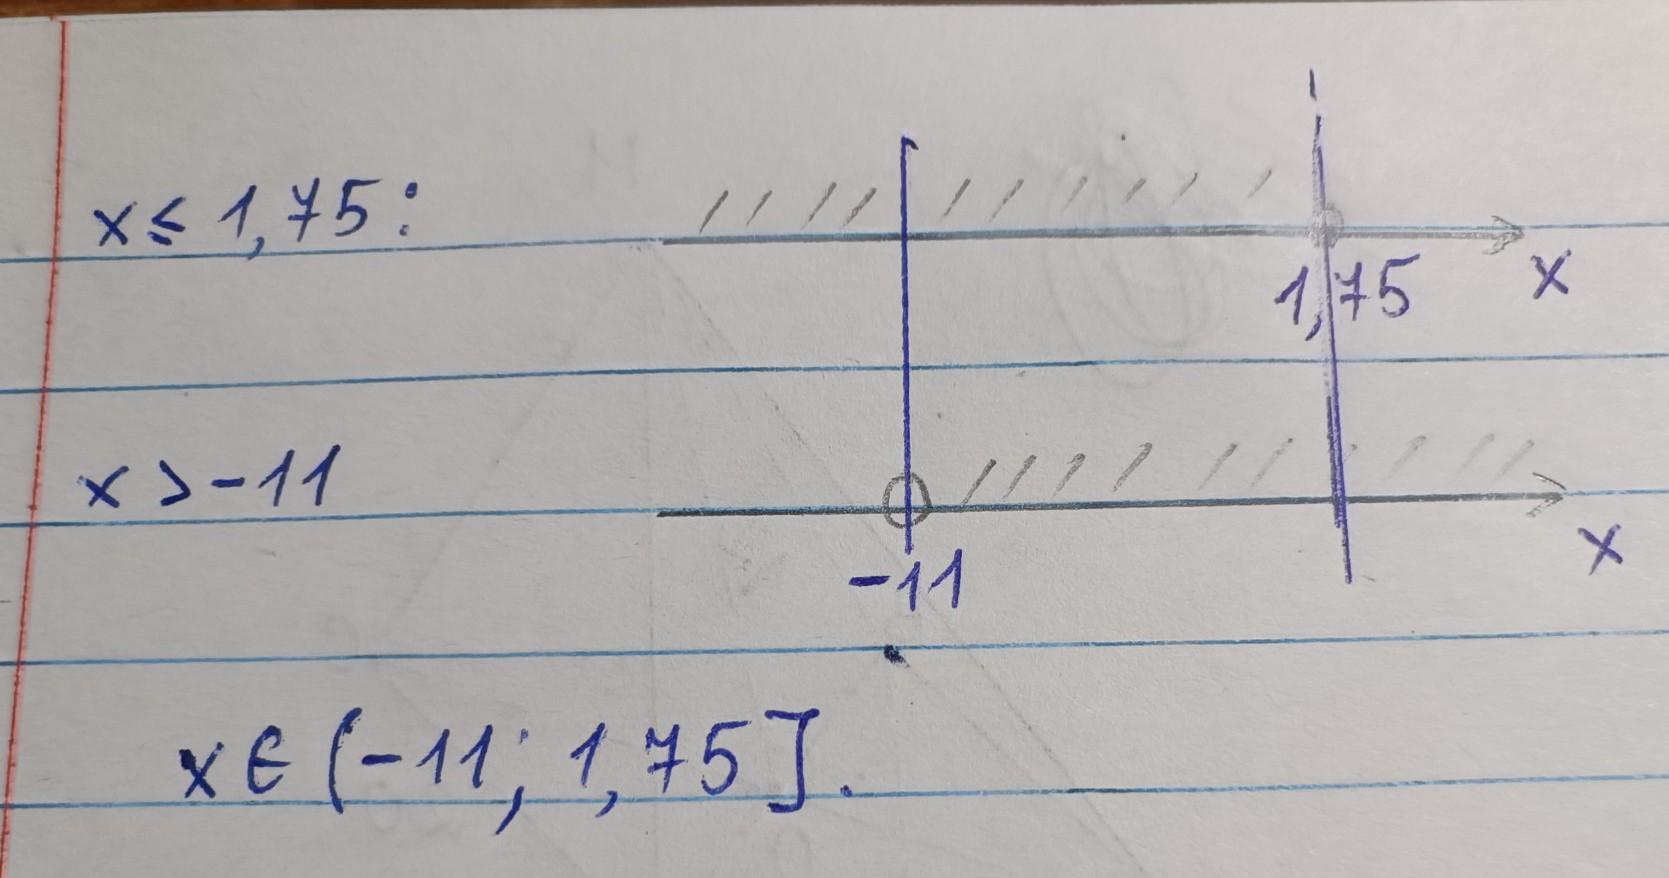 x ≤ 1,75:
1,75
x
x > -11
-11
x
x ∈ (-11; 1,75].